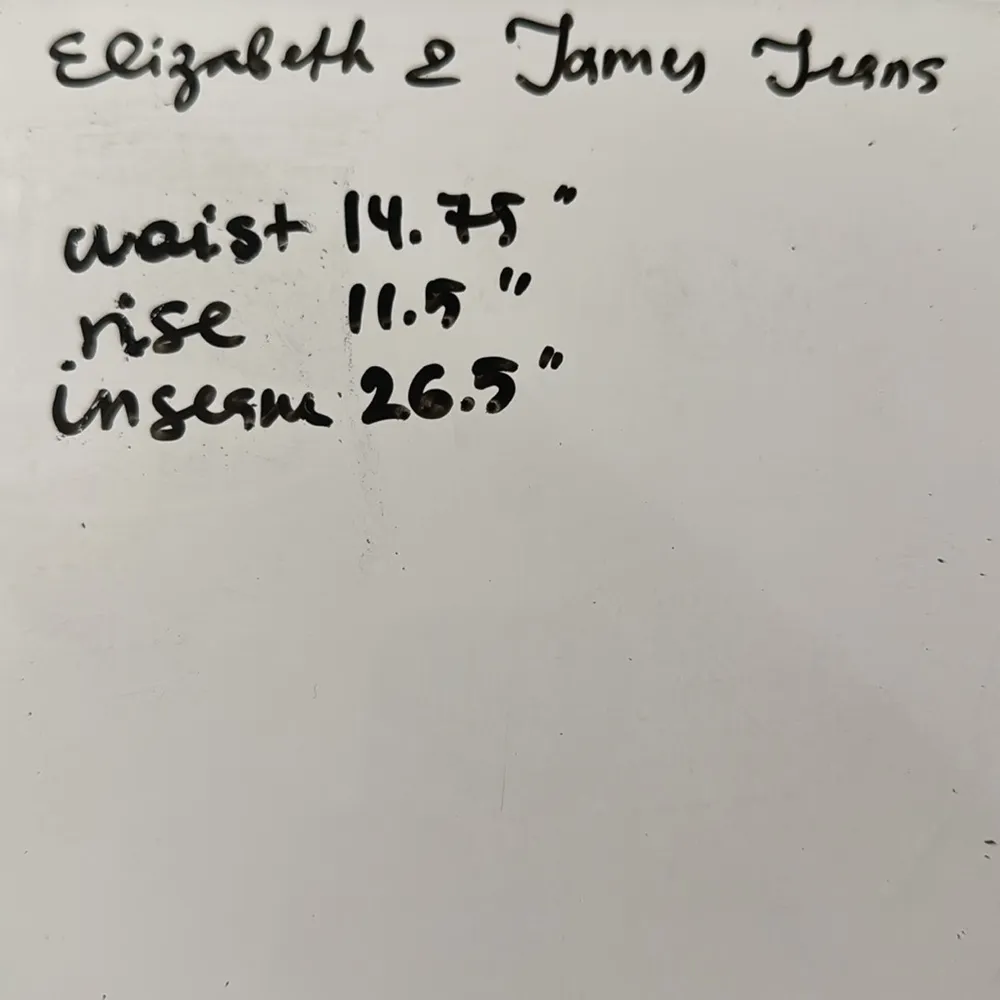 Elizabeth & James Jeans
waist 14.75"
rise 11.5"
inseam 26.5"